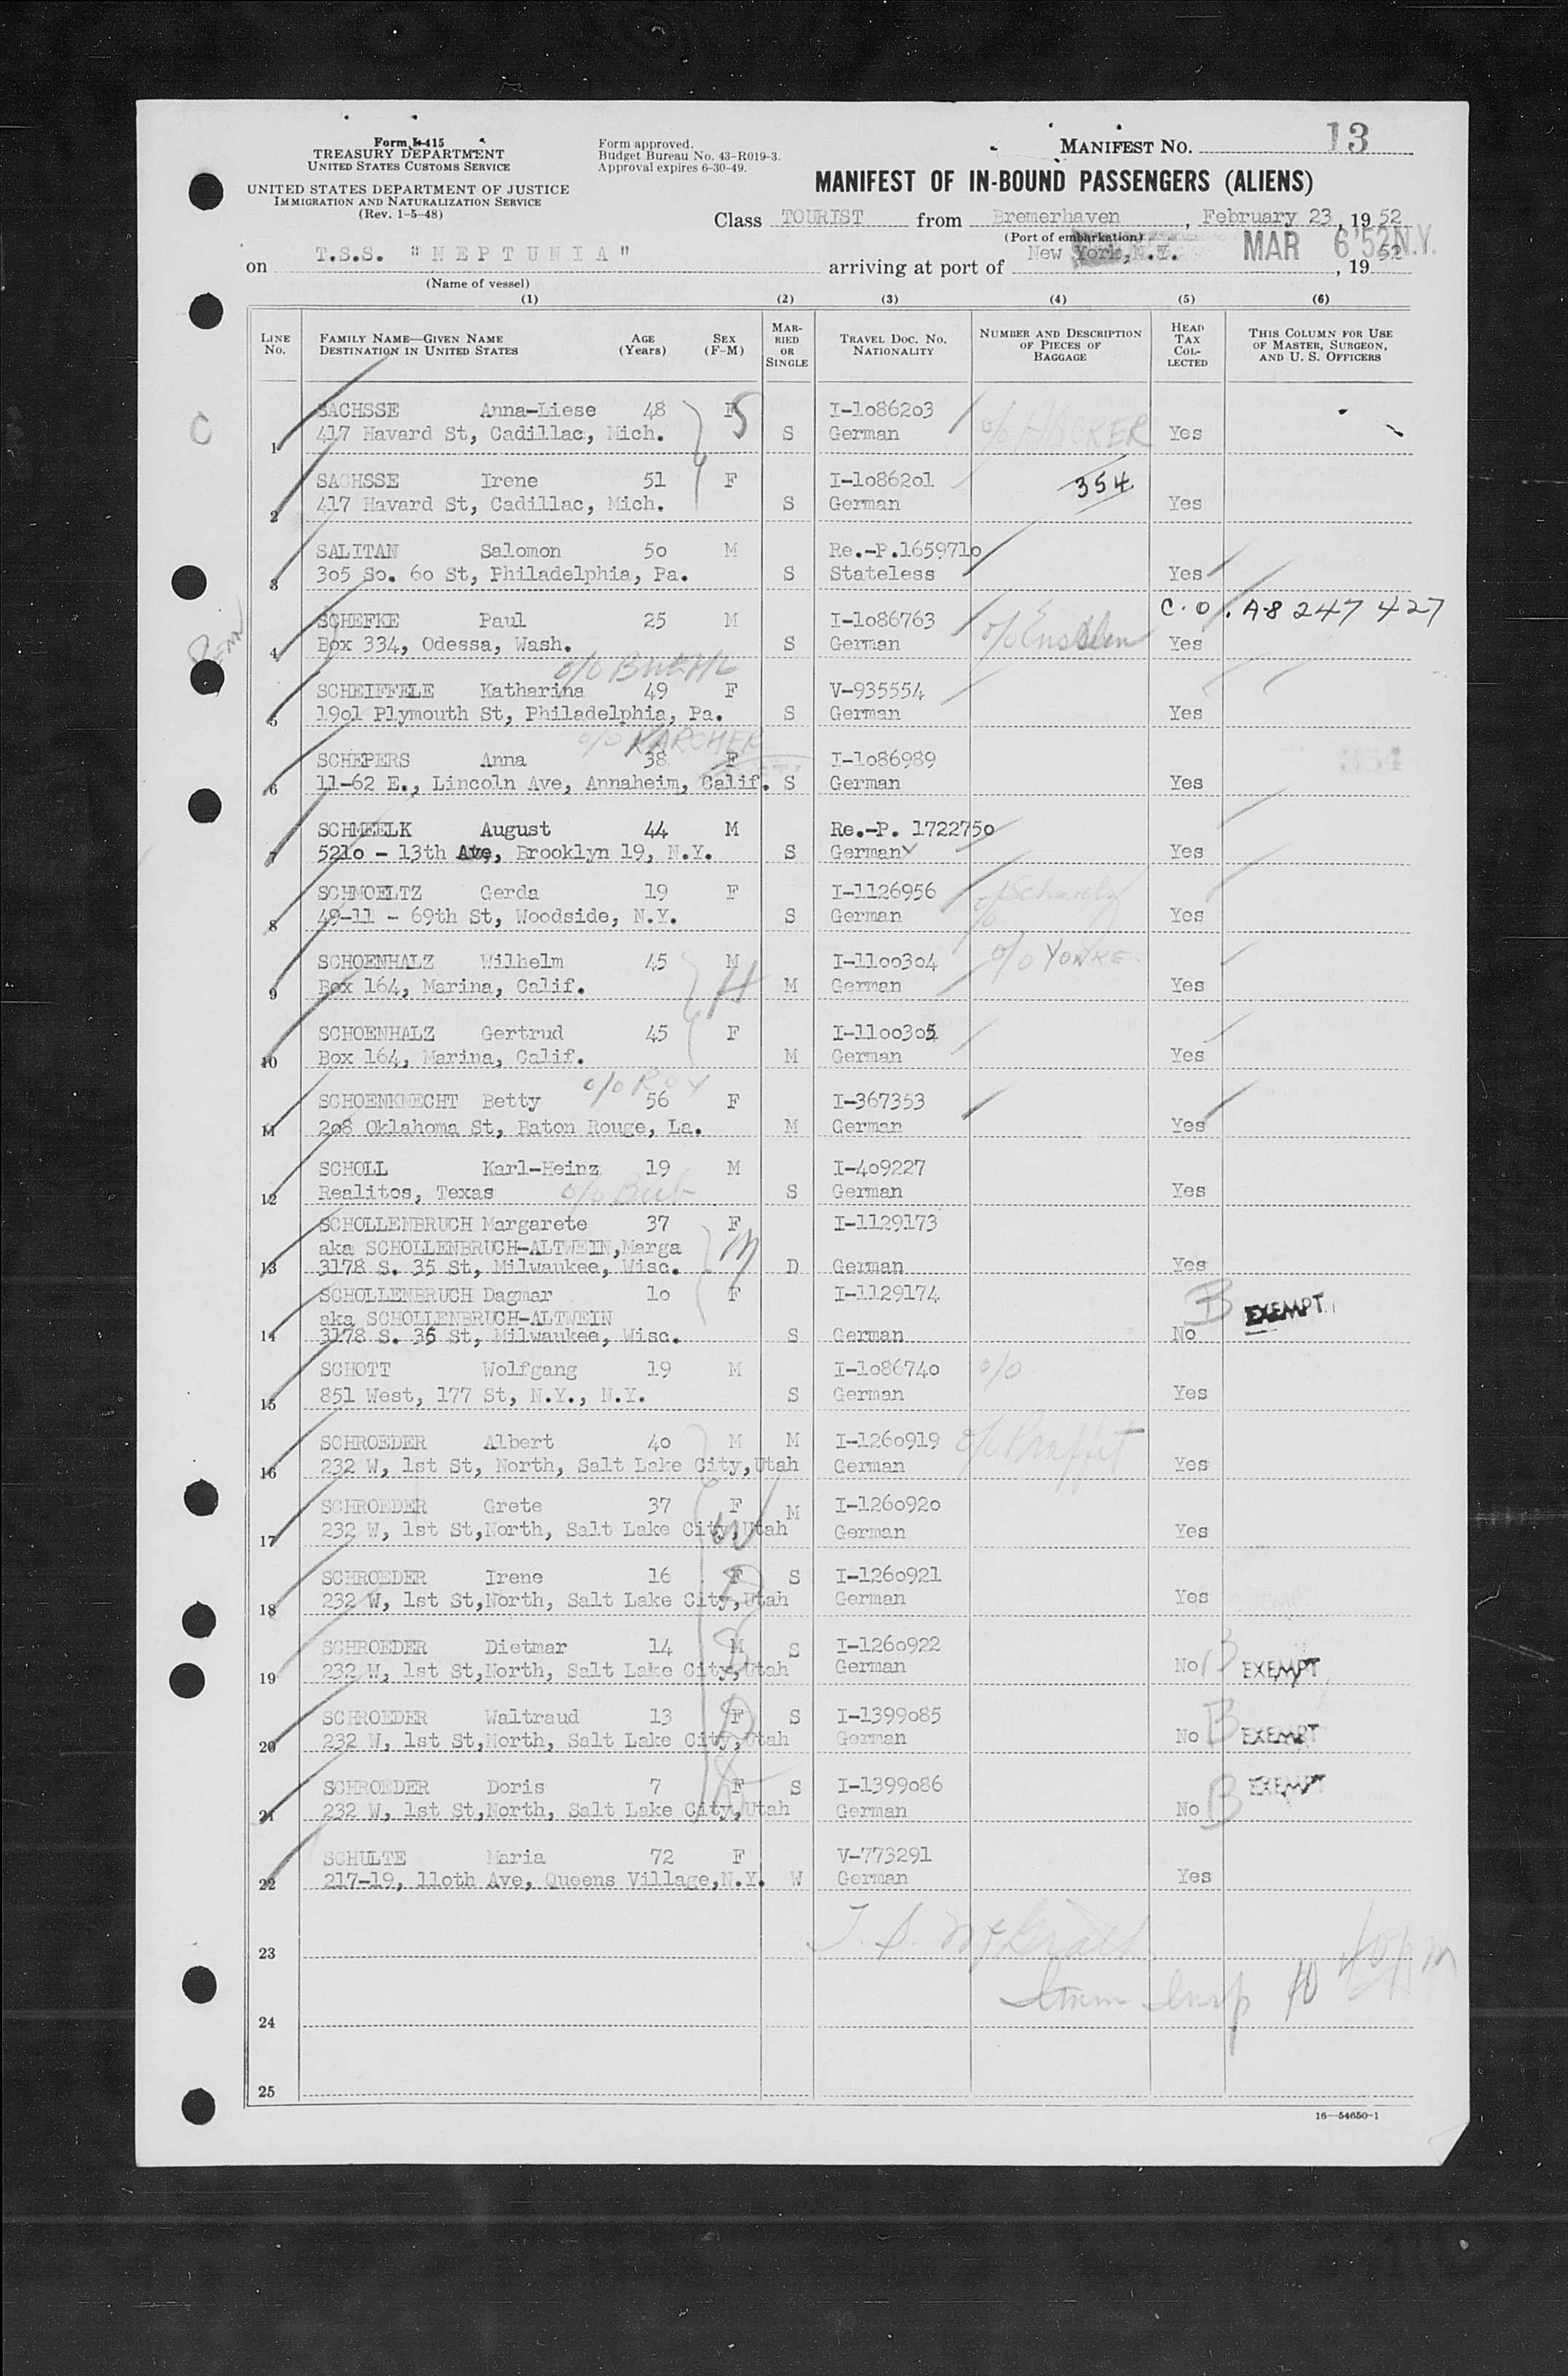 Form I-415
TREASURY DEPARTMENT
UNITED STATES CUSTOMS SERVICE
UNITED STATES DEPARTMENT OF JUSTICE
IMMIGRATION AND NATURALIZATION SERVICE
(Rev. 1-5-48)
Form approved.
Budget Bureau No. 43-R019-3.
Approval expires 6-30-49.
MANIFEST NO. 13
MANIFEST OF IN-BOUND PASSENGERS (ALIENS)
Class TOURIST from Bremerhaven, February 23, 19 52
(Port of embarkation)
on T.S.S. "NEPTUNIA" arriving at port of New York, N.Y. MAR 6 '52 N.Y. , 19 52
(Name of vessel)
(1) (2) (3) (4) (5) (6)
LINE No. FAMILY NAME—GIVEN NAME DESTINATION IN UNITED STATES AGE (Years) SEX (F-M) MARRIED OR SINGLE TRAVEL DOC. NO. NATIONALITY NUMBER AND DESCRIPTION OF PIECES OF BAGGAGE HEAD TAX COLLECTED THIS COLUMN FOR USE OF MASTER, SURGEON, AND U. S. OFFICERS
C
SACHSSE Anna-Liese 48 F S I-1o862o3 o/o HACKER
1 417 Havard St, Cadillac, Mich. S German Yes
SACHSSE Irene 51 F I-1o862o1 354
2 417 Havard St, Cadillac, Mich. S German Yes
SALITAN Salomon 5o M Re.-P.165971o
3 3o5 So. 6o St, Philadelphia, Pa. S Stateless Yes
C.O. A-8 247 427
SCHEFKE Paul 25 M I-1o86763
4 Box 334, Odessa, Wash. S German Yes
SCHEIFFELE Katharina 49 F V-935554
5 19o1 Plymouth St, Philadelphia, Pa. S German Yes
o/o KARCHER
SCHEPERS Anna 38 F I-1o86989
6 11-62 E., Lincoln Ave, Annaheim, Calif. S German Yes
SCHMEELK August 44 M Re.-P. 172275o
7 521o - 13th Ave, Brooklyn 19, N.Y. S German Yes
SCHMOELTZ Gerda 19 F I-1126956
8 49-11 - 69th St, Woodside, N.Y. S German Yes
SCHOENHALZ Wilhelm 45 M I-11oo3o4 o/o YONKE
9 Box 164, Marina, Calif. H M German Yes
SCHOENHALZ Gertrud 45 F I-11oo3o5
10 Box 164, Marina, Calif. M German Yes
o/o ROY
SCHOENKNECHT Betty 56 F I-367353
11 2o8 Oklahoma St, Baton Rouge, La. M German Yes
SCHOLL Karl-Heinz 19 M I-4o9227
12 Realitos, Texas S German Yes
SCHOLLENBRUCH Margarete 37 F I-1129173
aka SCHOLLENBRUCH-ALTWEIN,Marga M
13 3178 S. 35 St, Milwaukee, Wisc. D German Yes
SCHOLLENBRUCH Dagmar 1o F I-1129174 B EXEMPT
aka SCHOLLENBRUCH-ALTWEIN
14 3178 S. 35 St, Milwaukee, Wisc. S German No
SCHOTT Wolfgang 19 M I-1o8674o o/o
15 851 West, 177 St, N.Y., N.Y. S German Yes
SCHROEDER Albert 4o M M I-126o919
16 232 W, 1st St, North, Salt Lake City,Utah German Yes
SCHROEDER Grete 37 F M I-126o92o
17 232 W, 1st St,North, Salt Lake City,Utah W German Yes
SCHROEDER Irene 16 F S I-126o921
18 232 W, 1st St,North, Salt Lake City,Utah German Yes
SCHROEDER Dietmar 14 M S I-126o922
19 232 W, 1st St,North, Salt Lake City,Utah German No B EXEMPT
SCHROEDER Waltraud 13 F S I-1399o85
20 232 W, 1st St,North, Salt Lake City,Utah German No B EXEMPT
SCHROEDER Doris 7 F S I-1399o86 EXEMPT
21 232 W, 1st St,North, Salt Lake City,Utah German No B
SCHULTE Maria 72 F V-773291
22 217-19, 11oth Ave, Queens Village,N.Y. W German Yes
23
Imm Insp
24
25
16—54650-1